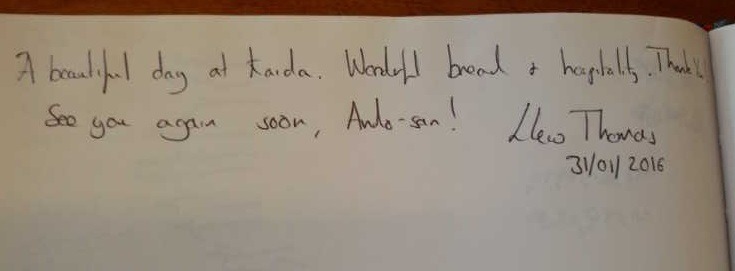 A beautiful day at Kaida. Wonderful bread & hospitality. Thank
See you again soon, Ando-san!
Llew Thomas
31/01/2016